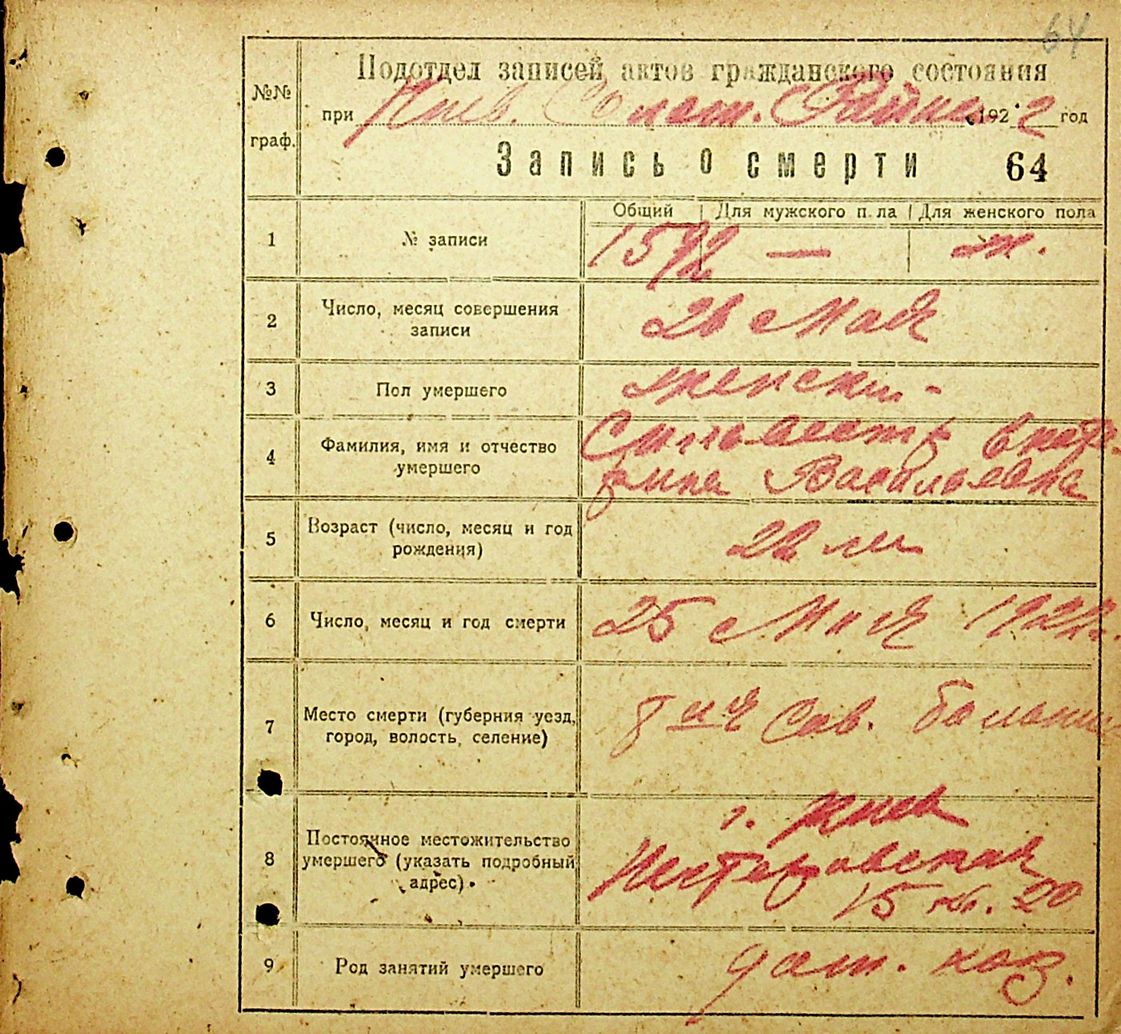 64
Подотдел записей актов гражданского состояния
№№ граф.
при Киев. 1922 год
Запись о смерти 64
Общий Для мужского пола Для женского пола
1 № записи 1592 — ж.
2 Число, месяц совершения записи
26 Мая
3 Пол умершего женский
4 Фамилия, имя и отчество умершего
Васильевна
5 Возраст (число, месяц и год рождения)
22
6 Число, месяц и год смерти 25 Мая 1922 г.
7 Место смерти (губерния уезд, город, волость, селение)
8ая Сов. больни
8 Постоянное местожительство умершего (указать подробный адрес).
г. Киев
Нестеровская
15 кв. 20
9 Род занятий умершего дом. хоз.